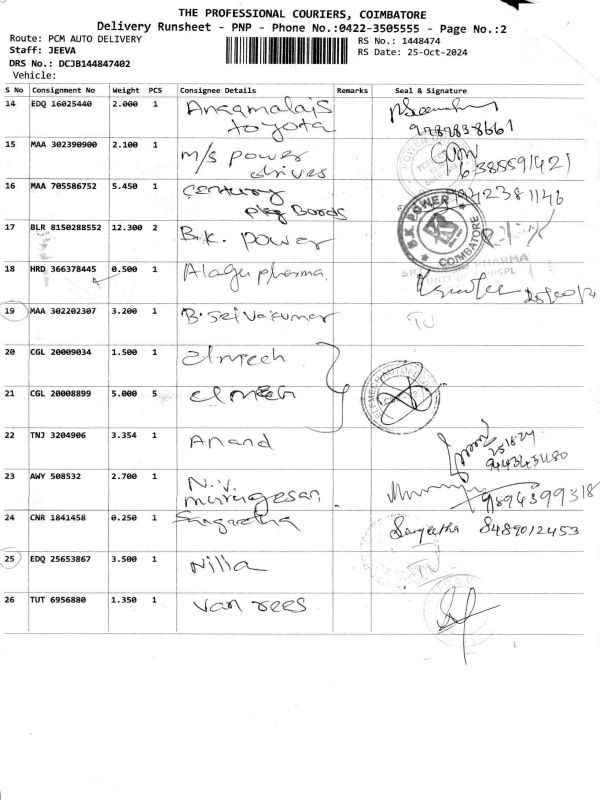 THE PROFESSIONAL COURIERS, COIMBATORE
Delivery Runsheet - PNP - Phone No.:0422-3505555 - Page No.:2
Route: PCM AUTO DELIVERY
RS No.: 1448474
Staff: JEEVA
RS Date: 25-Oct-2024
DRS No.: DCJB144847402
Vehicle:
S No Consignment No Weight PCS Consignee Details Remarks Seal & Signature
14 EDQ 16025440 2.000 1 Angamalais
toyota
15 MAA 302390900 2.100 1 M/s power
drives 6385591421
16 MAA 705586752 5.450 1 century
ply Boords 9442381146
17 BLR 8150288552 12.300 2 B.K. power
B.K. POWER COIMBATORE
18 HRD 366378445 0.500 1 Alagu pharma
PHARMA
19 MAA 302202307 3.200 1 B. Selvakumar TJ
20 CGL 20009034 1.500 1 elmech
21 CGL 20008899 5.000 5 elmech
22 TNJ 3204906 3.354 1 Anand
23 AWY 508532 2.700 1 N.V.
murugesan. 9894399318
24 CNR 1841458 0.250 1 Sangeetha Sangeetha 8489012453
25 EDQ 25653867 3.500 1 Nilla TJ
26 TUT 6956880 1.350 1 van rees